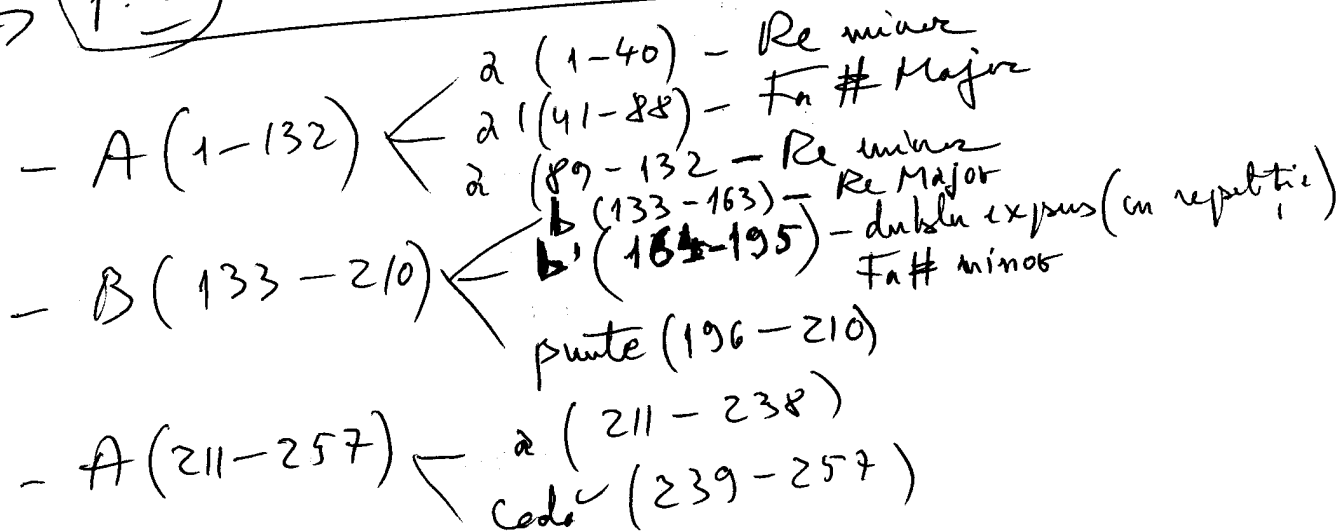 a (1-40) - Re minor
- A (1-132) a' (41-88) - Fa # Major
a (89-132 - Re minor
b (133-163) - Re Major
- B (133-210) b' (164-195) - dublu expus (cu repetiție)
Fa # minor
punte (196-210)
- A (211-257) a (211-238)
Codă (239-257)